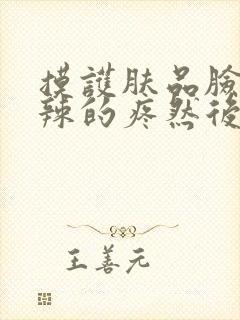 摸護肤品臉
辣的疼然後
王善元